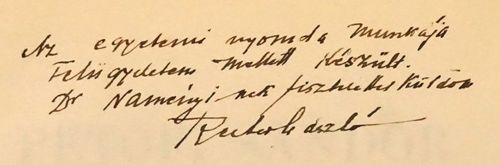 Az egyetemi nyomda munkája
Felügyeletem mellett készült.
Dr Naményi nek tisztelettel küldöm
Reiter László